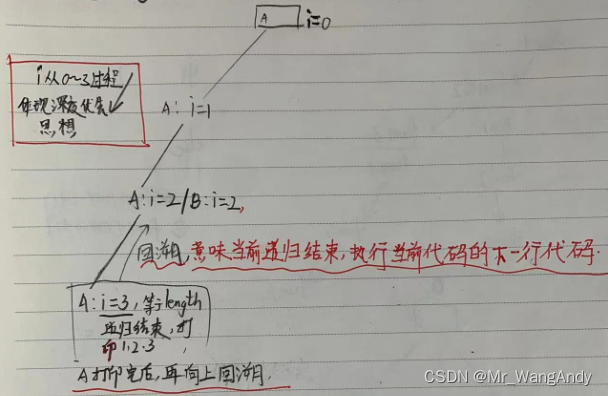 A i=0
i从0~3过程
体现深度优先
思想
A: i=1
A:i=2/B:i=2,
回溯,意味当前递归结束,执行当前代码的下一行代码.
A:i=3,等于length
递归结束,打
印1.2.3,
A打印完后,再向上回溯.
CSDN @Mr_WangAndy